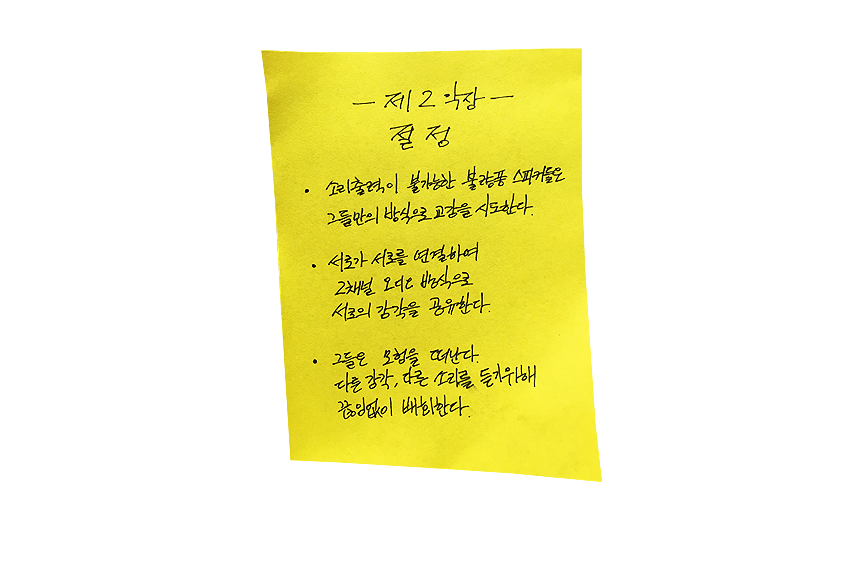 — 제 2 악장 —
절정
• 소리출력이 불가능한 불량품 스피커들은
그들만의 방식으로 교감을 시도한다.
• 서로가 서로를 연결하여
2채널 오디오 방식으로
서로의 감각을 공유한다.
• 그들은 모험을 떠난다.
다른 감각, 다른 소리를 듣기위해
끊임없이 배회한다.